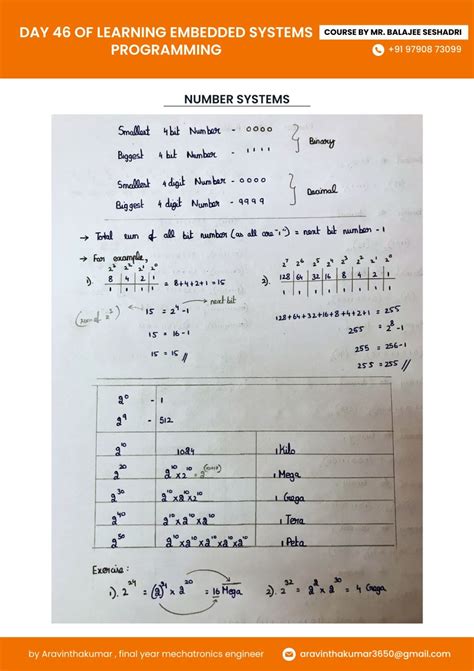 DAY 46 OF LEARNING EMBEDDED SYSTEMS PROGRAMMING
COURSE BY MR. BALAJEE SESHADRI
+91 97908 73099
NUMBER SYSTEMS
Smallest 4 bit Number - 0000
Biggest 4 bit Number - 1111
} Binary
Smallest 4 digit Number - 0000
Biggest 4 digit Number - 9999
} Decimal
→ Total sum of all bit number (as all are "1") = next bit number - 1
→ For example,
1). 2³ 2² 2¹ 2⁰
8 4 2 1 = 8+4+2+1 = 15
1 1 1 1
→ next bit
(sum of 2³) 15 = 2⁴ -1
15 = 16-1
15 = 15 //
2). 2⁷ 2⁶ 2⁵ 2⁴ 2³ 2² 2¹ 2⁰
128 64 32 16 8 4 2 1
1 1 1 1 1 1 1 1
128+64+32+16+8+4+2+1 = 255
255 = 2⁸ -1
255 = 256-1
255 = 255 //
2⁰ - 1
2⁹ - 512
2¹⁰ 1024 1 Kilo
2²⁰ 2¹⁰ x 2¹⁰ = 2 1 Mega
2³⁰ 2¹⁰ x 2¹⁰ x 2¹⁰ 1 Gega
2⁴⁰ 2¹⁰ x 2¹⁰ x 2¹⁰ 1 Tera
2⁵⁰ 2¹⁰ x 2¹⁰ x 2¹⁰ x 2¹⁰ x 2¹⁰ 1 Peta
Exercise :
1). 2²⁴ = (2)⁴ x 2²⁰ = 16 Mega
2). 2³² = 2² x 2³⁰ = 4 Gega
by Aravinthakumar , final year mechatronics engineer
aravinthakumar3650@gmail.com